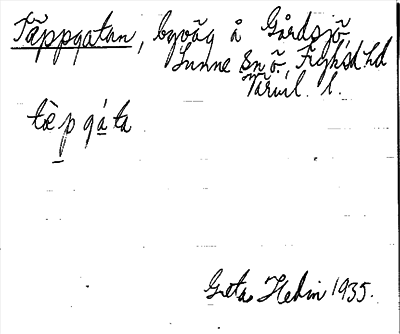 Täppgatan, byväg å Gårdsjö,
Lunne sn ö. Fryksd. hd
Värml. l.
tæ̀pgáta
Greta Hedin 1935.